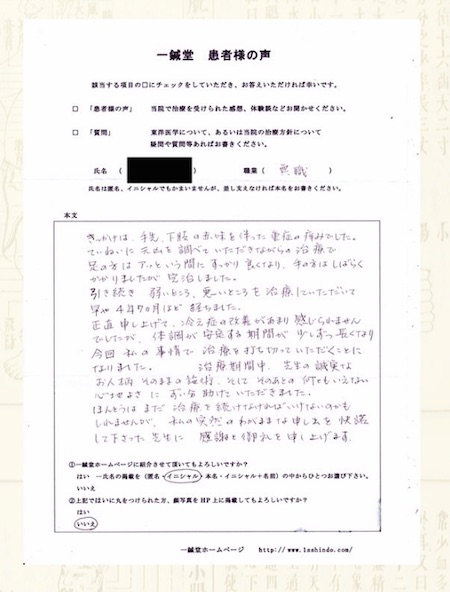 一鍼堂 患者様の声
該当する項目の□にチェックをしていただき、お答えいただければ幸いです。
□ 「患者様の声」 当院で治療を受けられた感想、体験談などお聞かせください。
□ 「質問」 東洋医学について、あるいは当院の治療方針について
疑問や質問等あればお書きください。
氏名 ( 職業( 無職 )
氏名は匿名、イニシャルでもかまいませんが、差し支えなければ本名をお書きください。
本文
きっかけは、手先、下肢の赤味を伴った重症の痛みでした。
ていねいに穴を調べていただきながらの治療で
足の方はアッという間にすっかり良くなり、手の方はしばらく
かかりましたが完治しました。
引き続き 弱いところ、悪いところを治療していただいて
早や4年7ヵ月ほど経ちました。
正直申し上げて、冷え症の改善があまり感じられません
でしたが、体調が安定する期間が少しずつ長くなり
今回 私の事情で 治療を打ち切っていただくことに
なりました。 治療期間中、先生の誠実な
お人柄そのままの施術、そしてそのあとの何ともいえない
心地よさに ずい分助けていただきました。
ほんとうはまだ 治療を続けなければいけないのかも
しれませんが、私の突然のわがままな申し出を快諾
して下さった先生に 感謝と御礼を申し上げます。
①一鍼堂ホームページに紹介させて頂いてもよろしいですか?
はい ―氏名の掲載を(匿名・イニシャル・本名・イニシャル+名前)の中からひとつお選び下さい。
いいえ
②上記ではいに丸をつけられた方、顔写真をHP上に掲載してもよろしいですか?
はい
いいえ
一鍼堂ホームページ http://www.1sshindo.com/